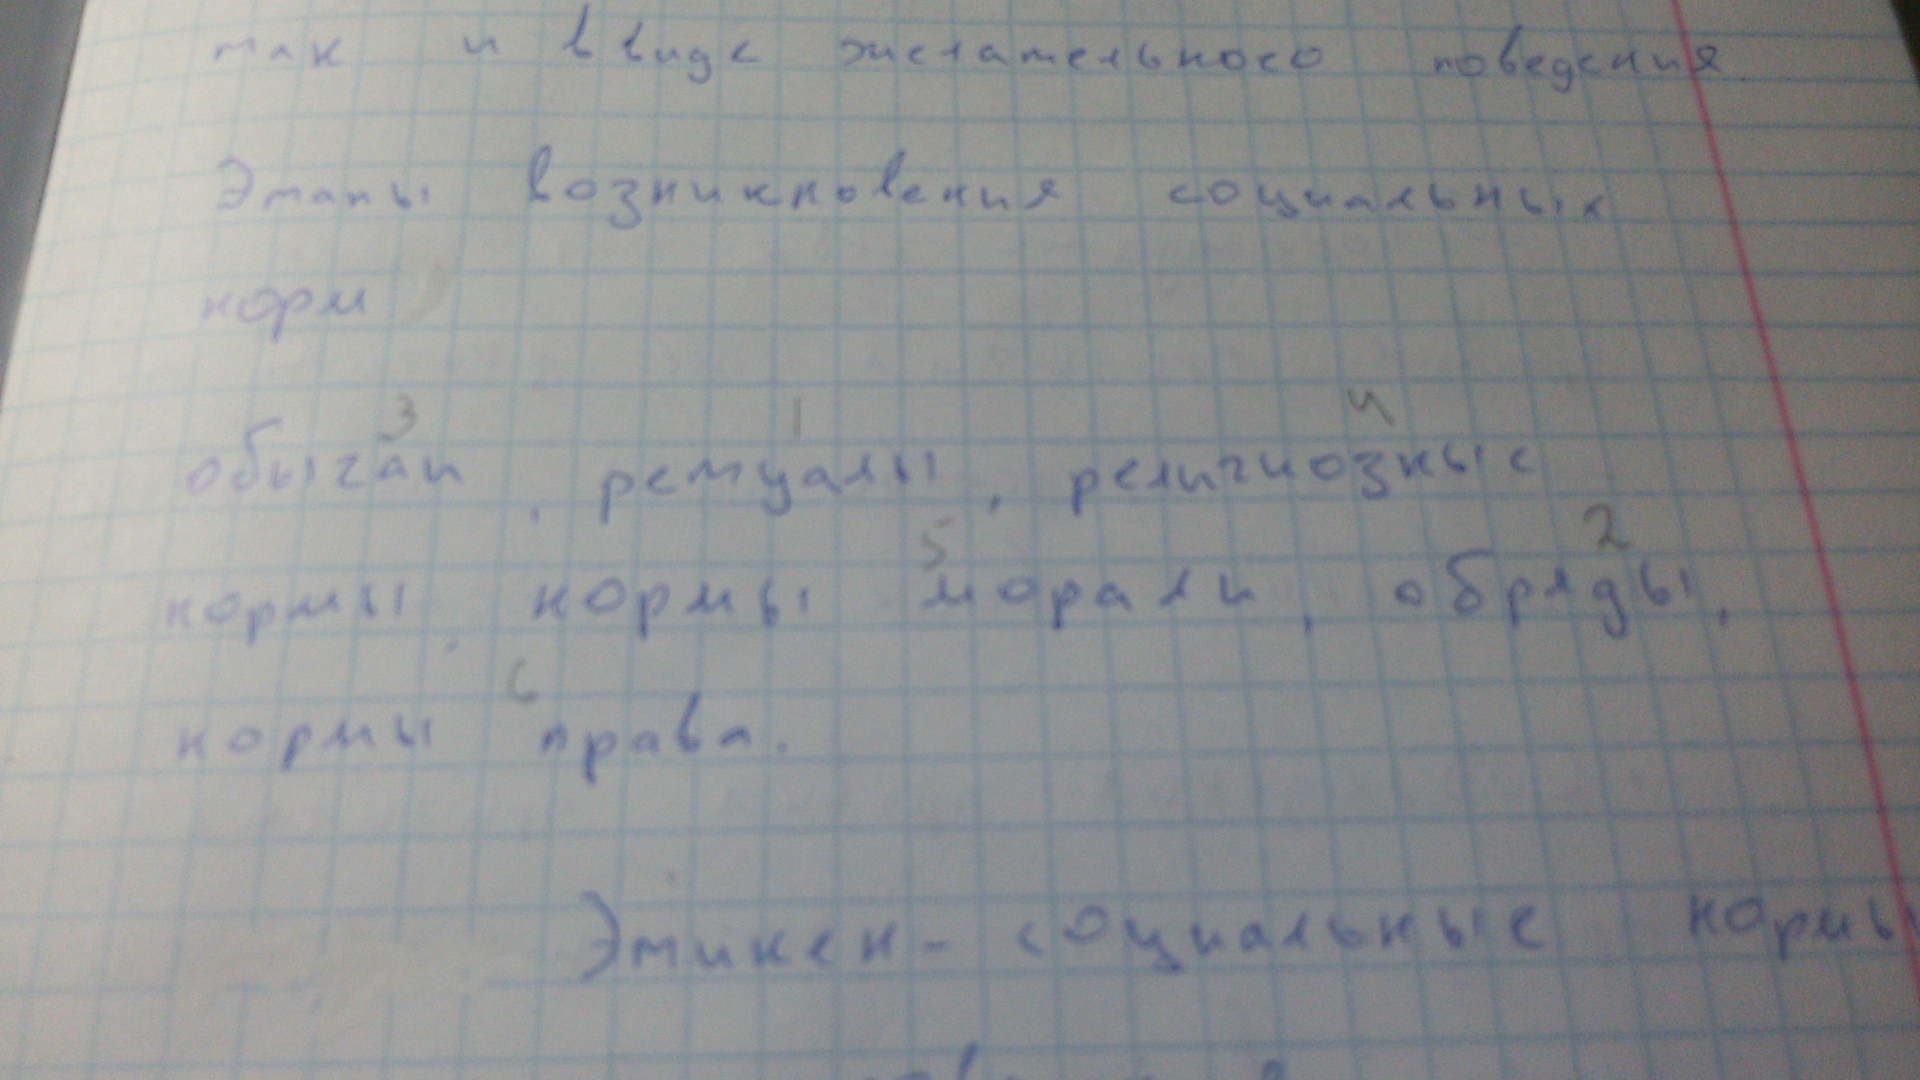 так и в виде желательного поведения.
Этапы возникновения социальных
норм
3 1 4
обычаи, ретуалы, религиозные
5 2
нормы, нормы морали, обряды,
6
нормы права.
Этикен - социальные нормы